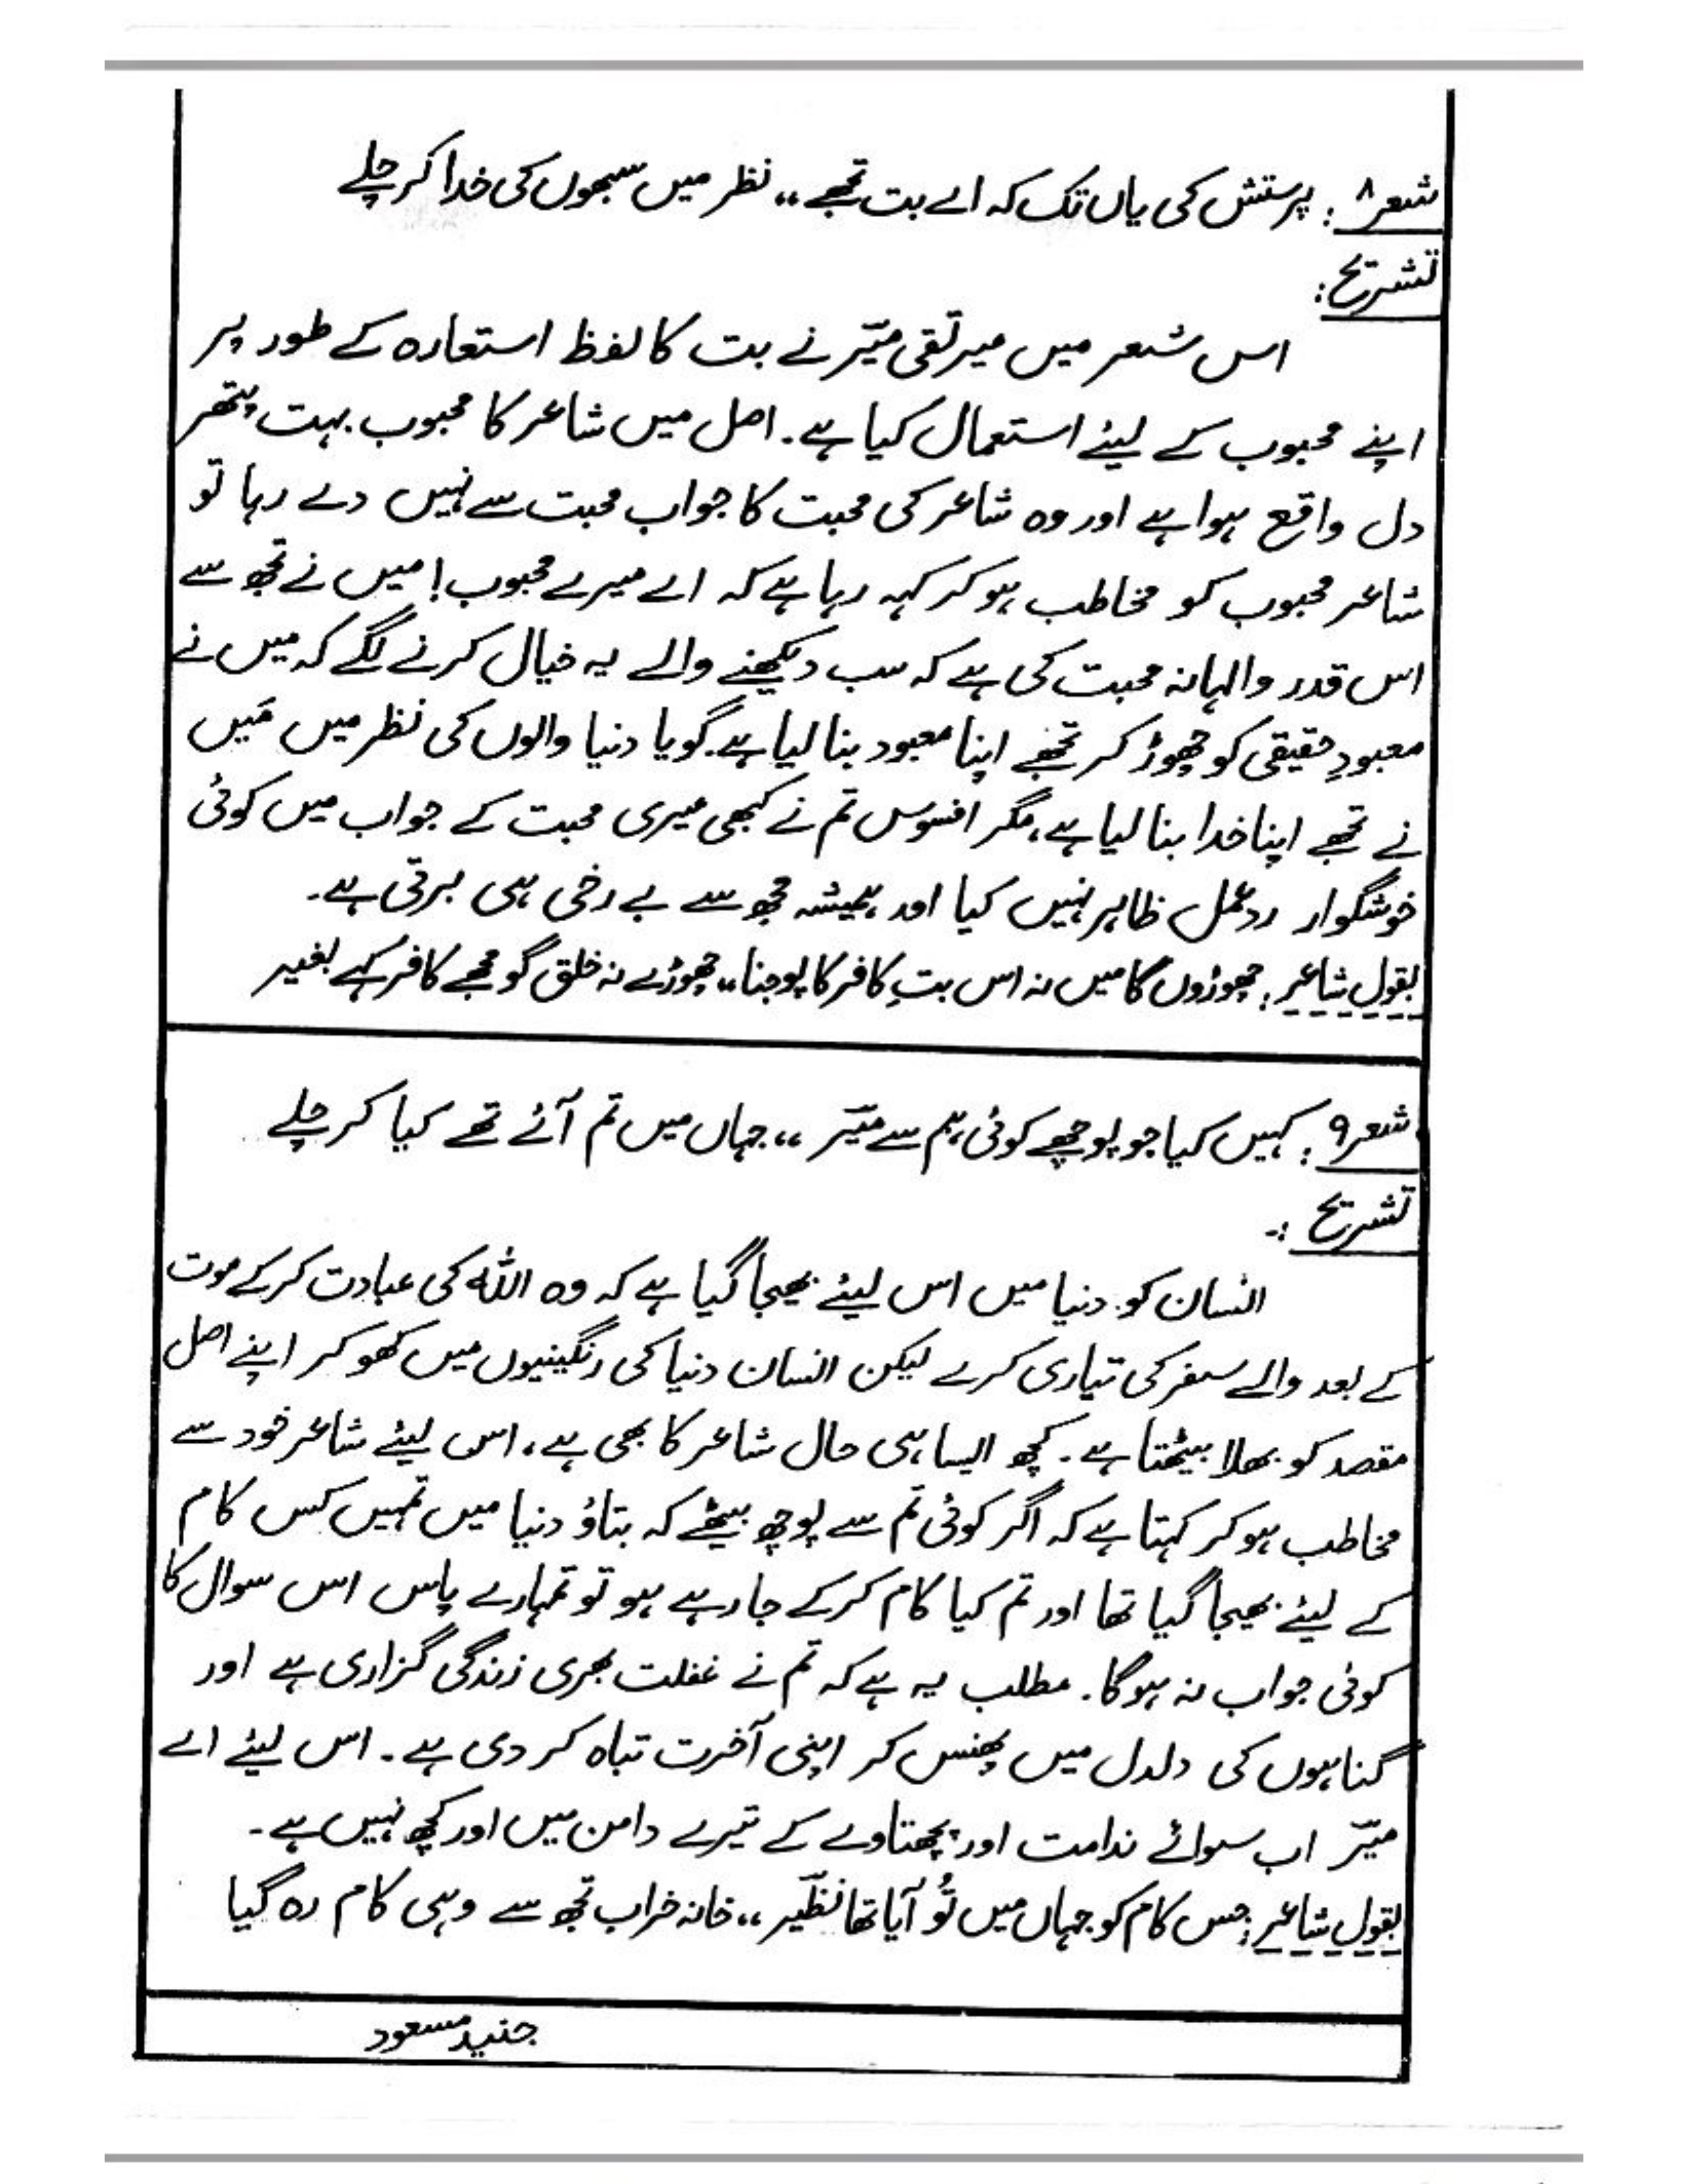 شعر ۸: پرستش کی یاں تک کہ اے بت تجھے ،، نظر میں سبھوں کی خدا کر چلے
تشریح:
اس شعر میں میر تقی میرؔ نے بت کا لفظ استعارہ کے طور پر
اپنے محبوب کے لیئے استعمال کیا ہے۔ اصل میں شاعر کا محبوب بہت پتھر
دل واقع ہوا ہے اور وہ شاعر کی محبت کا جواب محبت سے نہیں دے رہا تو
شاعر محبوب کو مخاطب ہو کر کہہ رہا ہے کہ اے میرے محبوب! میں نے تجھ سے
اس قدر والہانہ محبت کی ہے کہ سب دیکھنے والے یہ خیال کرنے لگے کہ میں نے
معبودِ حقیقی کو چھوڑ کر تجھے اپنا معبود بنا لیا ہے۔ گویا دنیا والوں کی نظر میں مَیں
نے تجھے اپنا خدا بنا لیا ہے، مگر افسوس تم نے کبھی میری محبت کے جواب میں کوئی
خوشگوار ردعمل ظاہر نہیں کیا اور ہمیشہ مجھ سے بے رخی ہی برتی ہے۔
بقول شاعر: چھوڑوں گا میں نہ اس بتِ کافر کا پوجنا ،، چھوڑے نہ خلق گو مجھے کافر کہے بغیر
شعر ۹: کہیں کیا جو پوچھے کوئی ہم سے میرؔ ،، جہاں میں تم آئے تھے کیا کر چلے
تشریح :-
انسان کو دنیا میں اس لیئے بھیجا گیا ہے کہ وہ اللہ کی عبادت کر کے موت
کے بعد والے سفر کی تیاری کرے لیکن انسان دنیا کی رنگینیوں میں کھو کر اپنے اصل
مقصد کو بھلا بیٹھتا ہے۔ کچھ ایسا ہی حال شاعر کا بھی ہے، اس لیئے شاعر خود سے
مخاطب ہو کر کہتا ہے کہ اگر کوئی تم سے پوچھ بیٹھے کہ بتاؤ دنیا میں تمہیں کس کام
کے لیئے بھیجا گیا تھا اور تم کیا کام کر کے جا رہے ہو تو تمہارے پاس اس سوال کا
کوئی جواب نہ ہوگا۔ مطلب یہ ہے کہ تم نے غفلت بھری زندگی گزاری ہے اور
گناہوں کی دلدل میں پھنس کر اپنی آخرت تباہ کر دی ہے۔ اس لیئے اے
میرؔ اب سوائے ندامت اور پچھتاوے کے تیرے دامن میں اور کچھ نہیں ہے۔
بقول شاعر: جس کام کو جہاں میں تُو آیا تھا نظیرؔ ،، خانہ خراب تجھ سے وہی کام رہ گیا
جنید مسعود